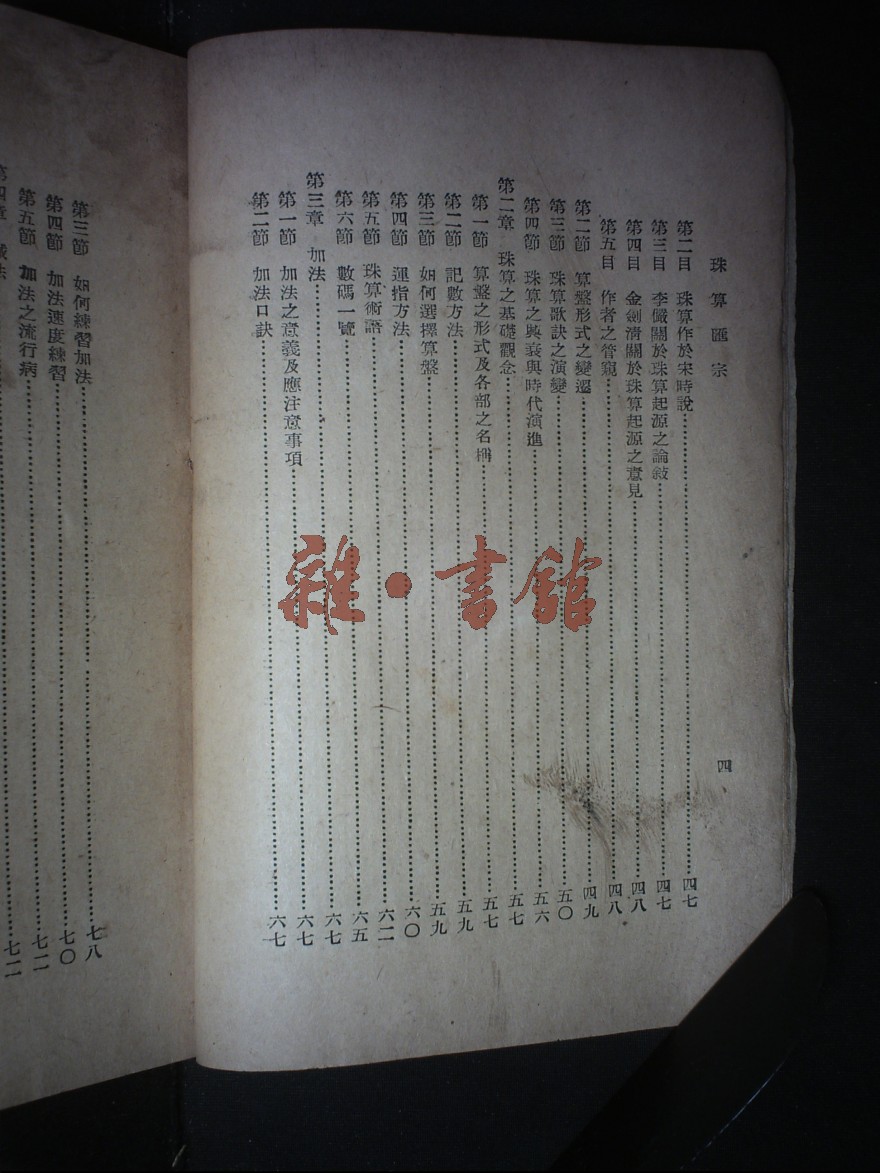 珠算匯宗
四
第二目 珠算作於宋時說……四七
第三目 李儼關於珠算起源之論敍……四七
第四目 金劍清關於珠算起源之意見……四八
第五目 作者之管窺……四八
第二節 算盤形式之變遷……四九
第三節 珠算歌訣之演變……五〇
第四節 珠算之興衰與時代演進……五六
第二章 珠算之基礎觀念……五七
第一節 算盤之形式及各部之名稱……五七
第二節 記數方法……五九
第三節 如何選擇算盤……五九
第四節 運指方法……六〇
第五節 珠算術語……六二
第六節 數碼一覽……六五
第三章 加法……六七
第一節 加法之意義及應注意事項……六七
第二節 加法口訣……六七
第三節 如何練習加法……七八
第四節 加法速度練習……七〇
第五節 加法之流行病……七二
雜·書館